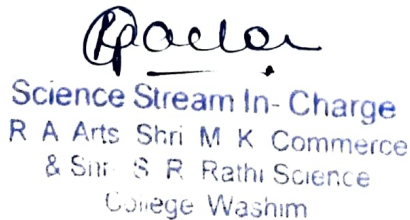 Science Stream In-Charge
R A Arts Shri M K Commerce
& Shri S R Rathi Science
College Washim